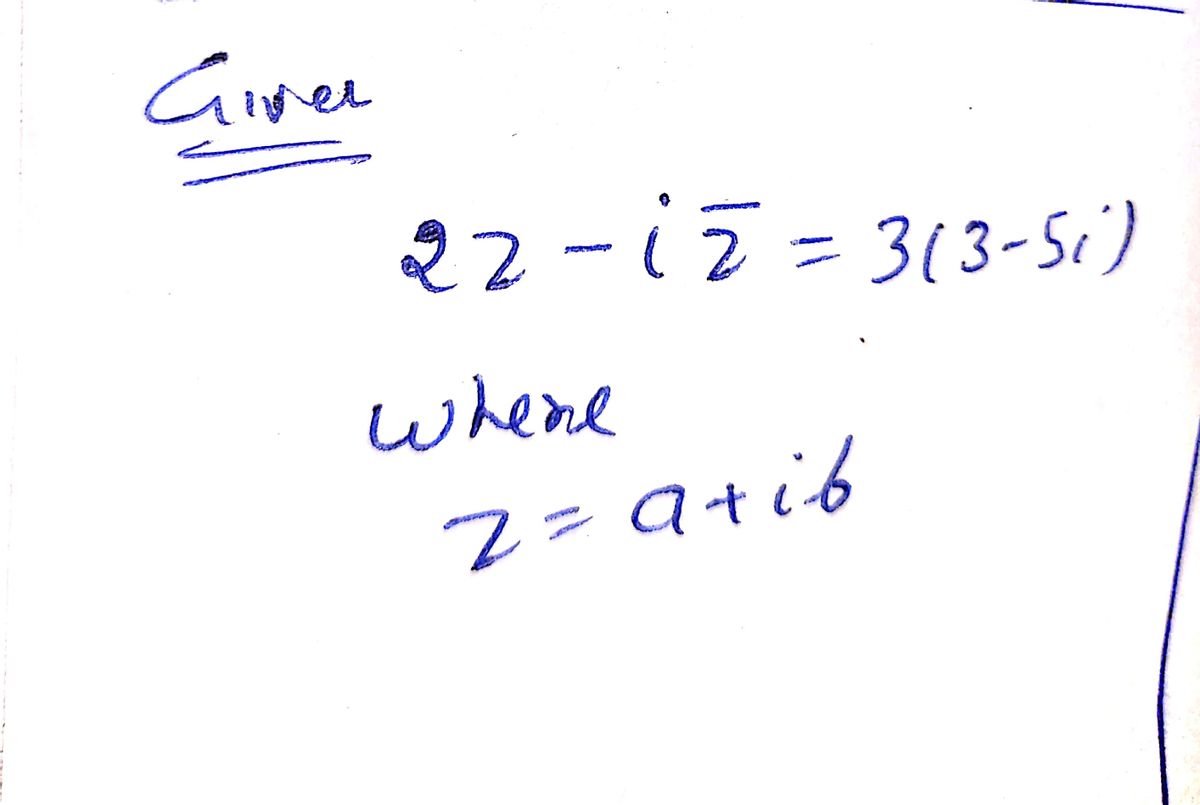 Given
2z - i z̄ = 3(3-5i)
where
z = a + ib